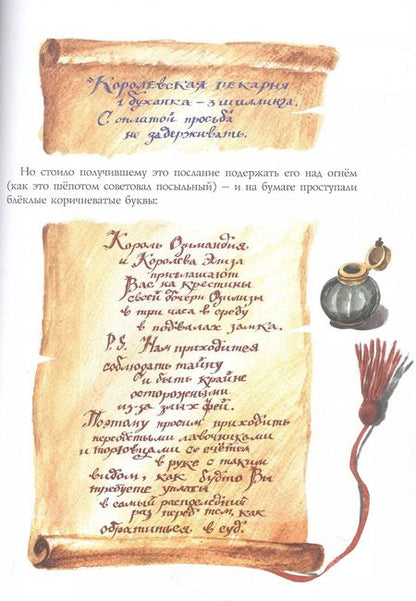 Королевская пекарня
1 буханка – 3 шиллинга.
С оплатой просьба
не задерживать.
Но стоило получившему это послание подержать его над огнём
(как это шёпотом советовал посыльный) – и на бумаге проступали
блёклые коричневатые буквы:
Король Озимандия
и Королева Элиза
приглашают
Вас на крестины
своей дочери Одилизы
в три часа в среду
в подвалах замка.
P.S. Нам приходится
соблюдать тайну
и быть крайне
осторожными
из-за злых фей.
Поэтому просим приходить
переодетыми лавочниками
и торговцами со счётом
в руке с таким
видом, как будто Вы
требуете уплаты
в самый распоследний
раз перед тем, как
обратиться в суд.